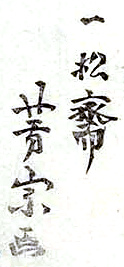 一松齋
芳宗画